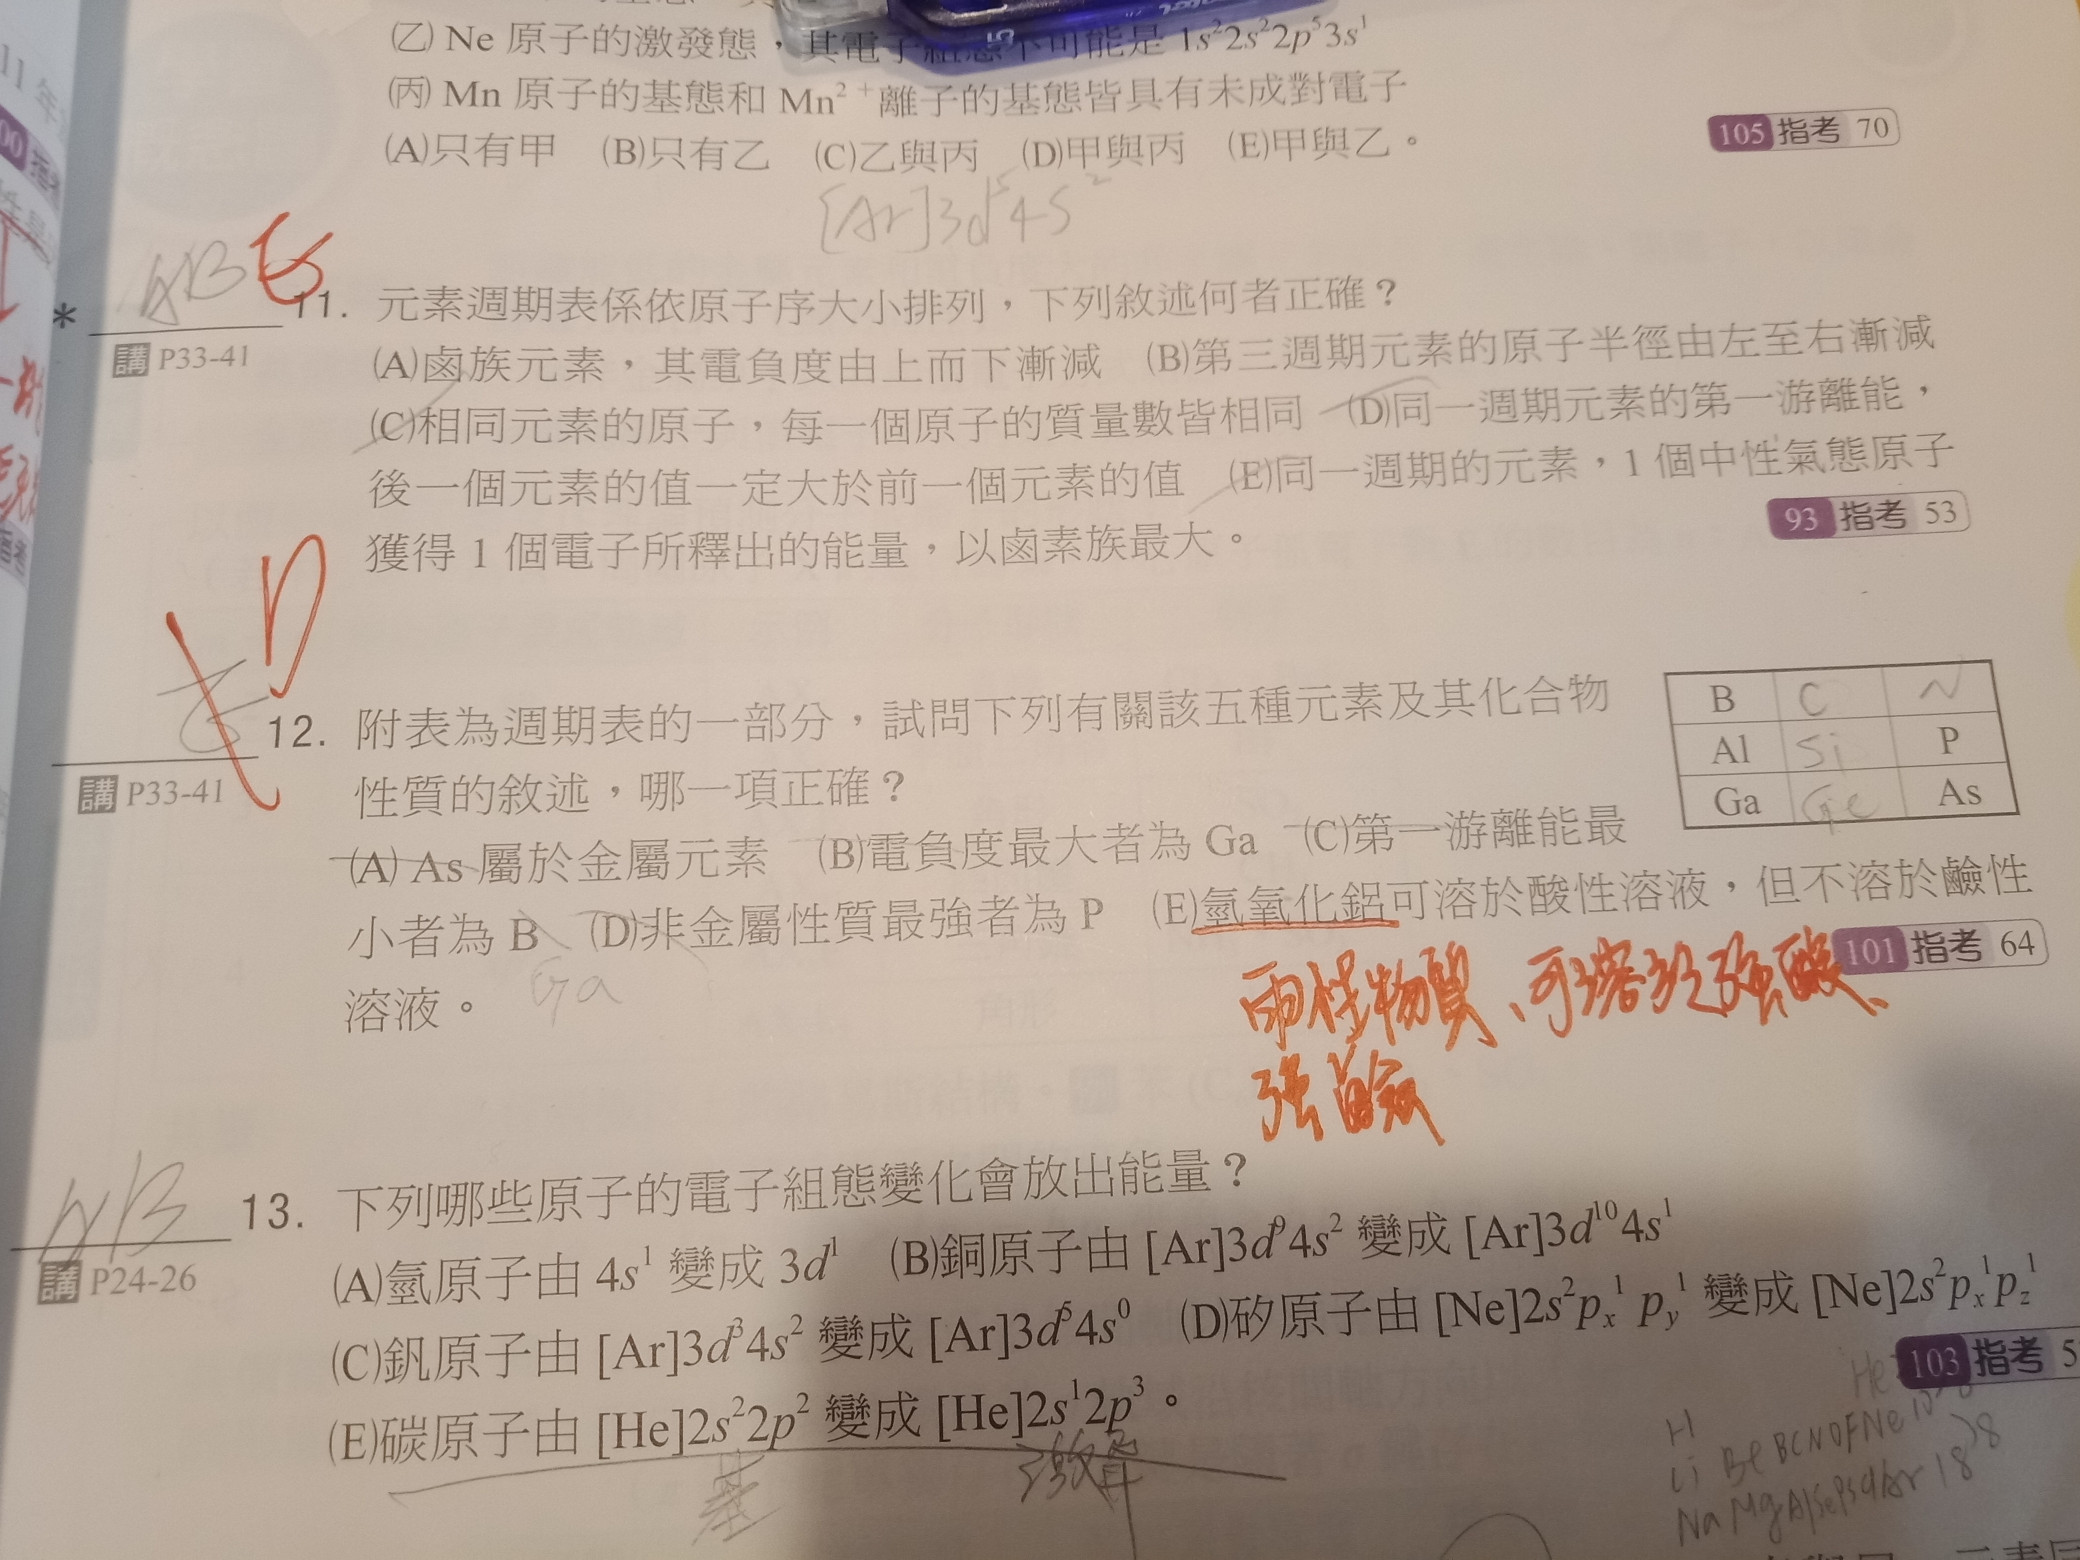 (乙) Ne 原子的激發態，其電子組態不可能是 1s²2s²2p⁵3s¹
(丙) Mn 原子的基態和 Mn²⁺離子的基態皆具有未成對電子
(A)只有甲 (B)只有乙 (C)乙與丙 (D)甲與丙 (E)甲與乙。
105 指考 70
[Ar]3d⁵4s²
AB E
* 11. 元素週期表係依原子序大小排列，下列敘述何者正確？
講 P33-41
(A)鹵族元素，其電負度由上而下漸減 (B)第三週期元素的原子半徑由左至右漸減
(C)相同元素的原子，每一個原子的質量數皆相同 (D)同一週期元素的第一游離能，
後一個元素的值一定大於前一個元素的值 (E)同一週期的元素，1 個中性氣態原子
獲得 1 個電子所釋出的能量，以鹵素族最大。
93 指考 53
D
12. 附表為週期表的一部分，試問下列有關該五種元素及其化合物
性質的敘述，哪一項正確？
講 P33-41
B C N
Al Si P
Ga Ge As
(A) As 屬於金屬元素 (B)電負度最大者為 Ga (C)第一游離能最
小者為 B (D)非金屬性質最強者為 P (E)氫氧化鋁可溶於酸性溶液，但不溶於鹼性
溶液。
Ga
101 指考 64
兩性物質、可溶於強酸、
強鹼
AB
13. 下列哪些原子的電子組態變化會放出能量？
講 P24-26
(A)氫原子由 4s¹ 變成 3d¹ (B)銅原子由 [Ar]3d⁹4s² 變成 [Ar]3d¹⁰4s¹
(C)釩原子由 [Ar]3d³4s² 變成 [Ar]3d⁵4s⁰ (D)矽原子由 [Ne]2s²pₓ¹ p_y¹ 變成 [Ne]2s²pₓ¹p_z¹
(E)碳原子由 [He]2s²2p² 變成 [He]2s¹2p³。
103 指考 5
基
激
H He
Li Be B C N O F Ne 10
Na Mg Al Ar 18